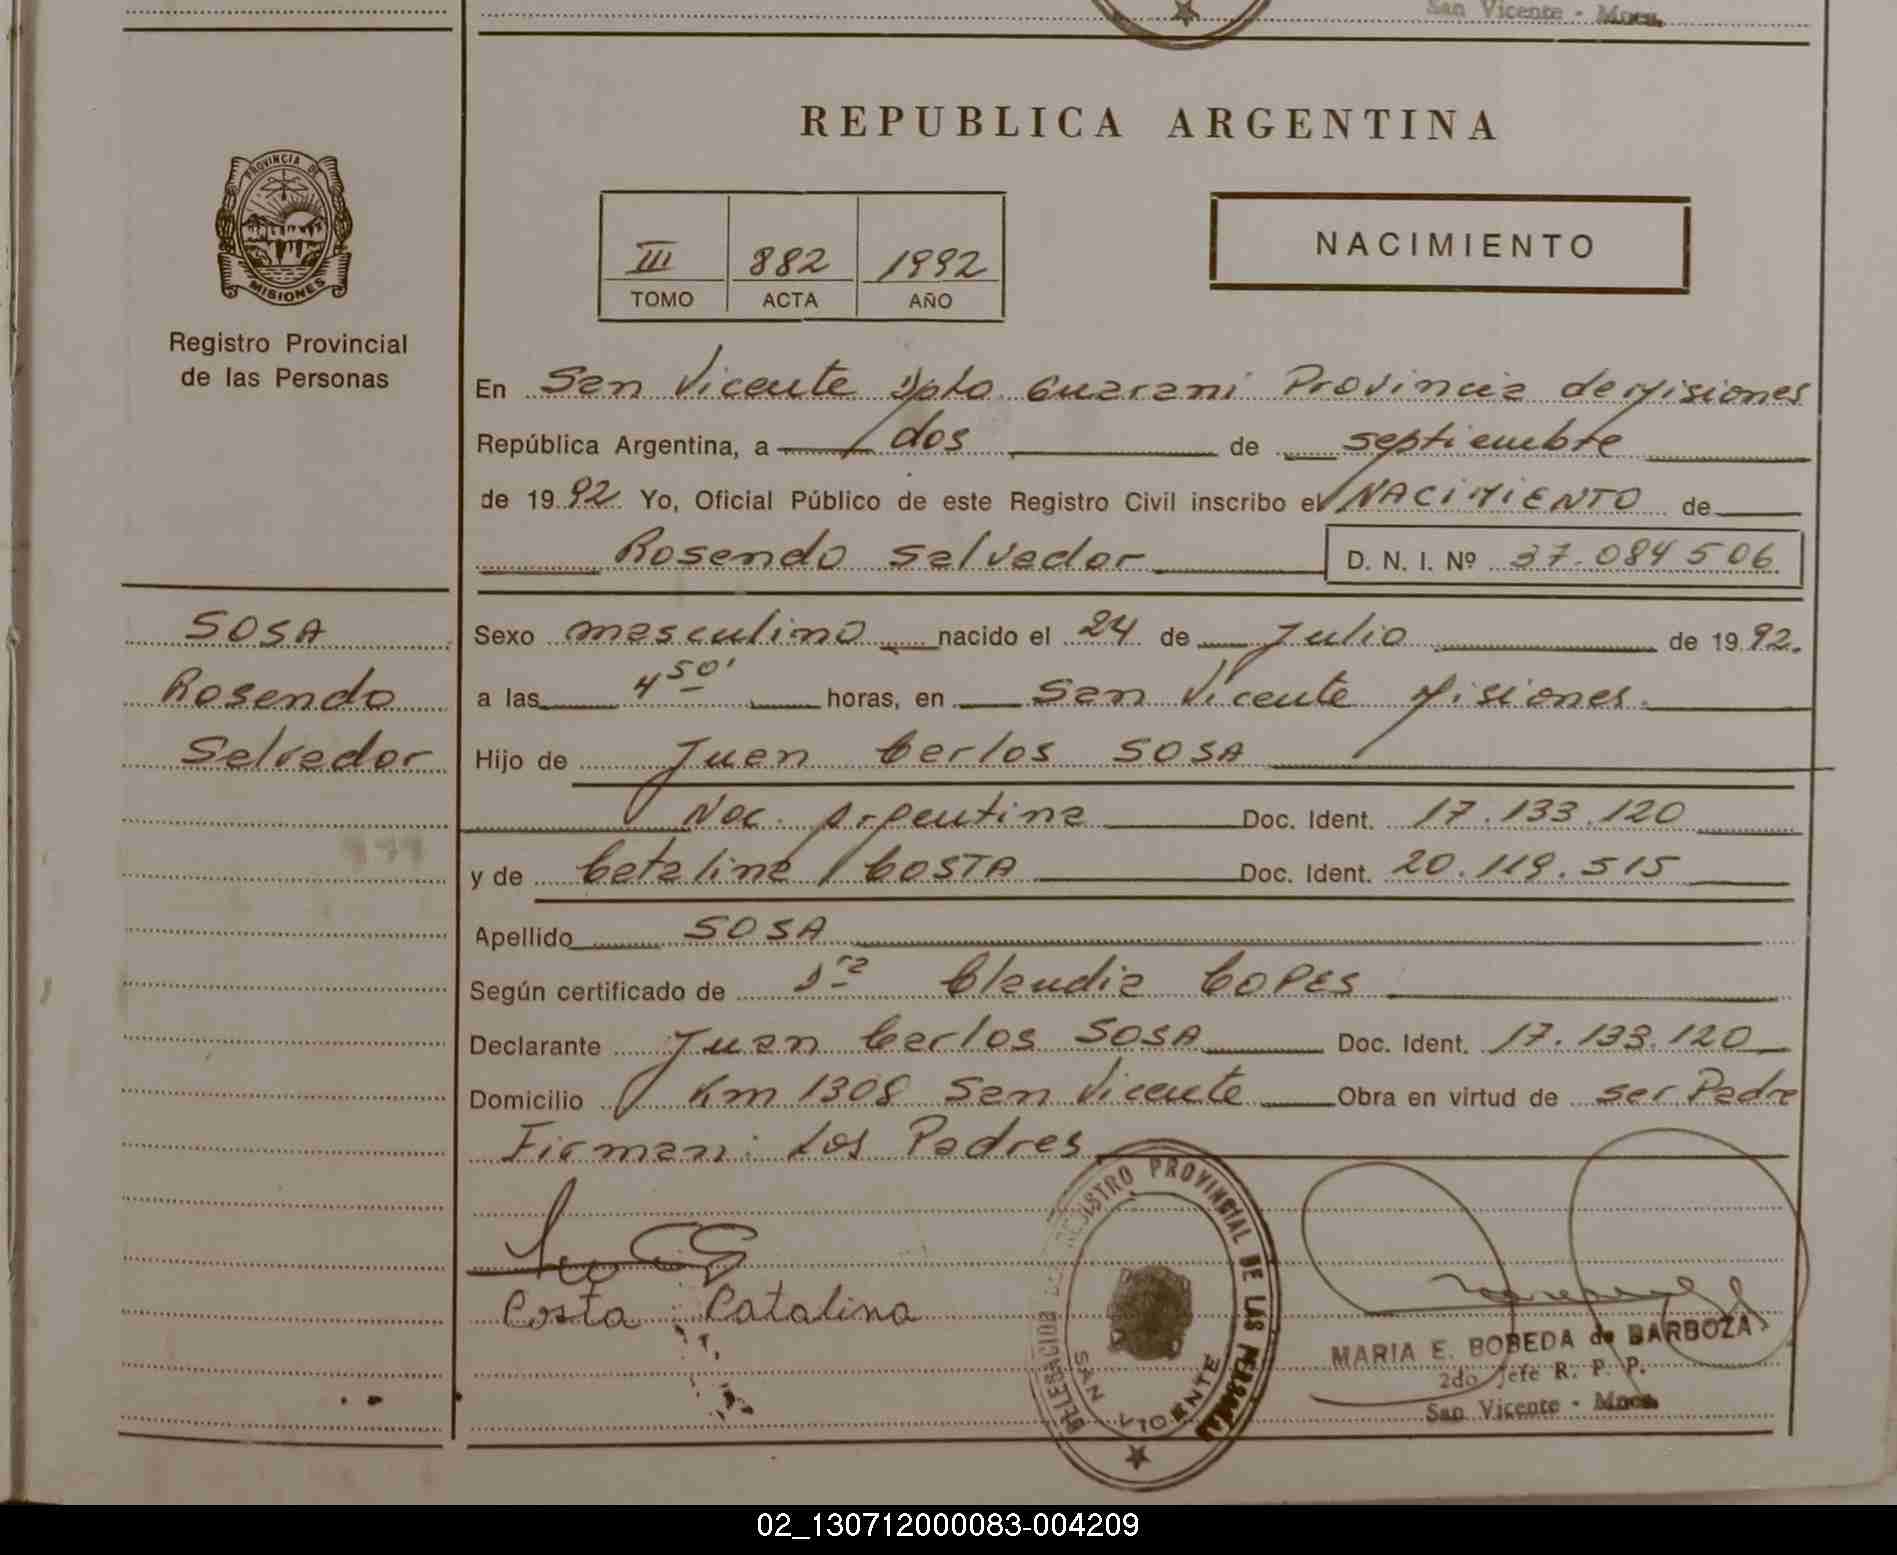 San Vicente - Mnes.
REPUBLICA ARGENTINA
PROVINCIA DE
MISIONES
Registro Provincial
de las Personas
III 882 1992
TOMO ACTA AÑO
NACIMIENTO
En San Vicente Dpto. Guarani Provincia de Misiones
República Argentina, a dos de septiembre
de 1992 Yo, Oficial Público de este Registro Civil inscribo el NACIMIENTO de
Rosendo Salvador D. N. I. Nº 37.084506
SOSA
Rosendo
Salvador
Sexo masculino nacido el 24 de Julio de 1992.
a las 4 50' horas, en San Vicente Misiones.
Hijo de Juan Carlos SOSA
Nac. Argentina Doc. Ident. 17.133.120
y de Catalina COSTA Doc. Ident. 20.119.515
Apellido SOSA
Según certificado de Dra Claudia COPES
Declarante Juan Carlos SOSA Doc. Ident. 17.133.120
Domicilio Km 1308 San Vicente Obra en virtud de ser Padre
Firman: Los Padres
Costa Catalina
DELEGACION DE REGISTRO PROVINCIAL DE LAS PERSONAS
SAN VICENTE
MARIA E. BOBEDA de BARBOZA
2do Jefe R. P. P.
San Vicente - Mnes.
02_130712000083-004209